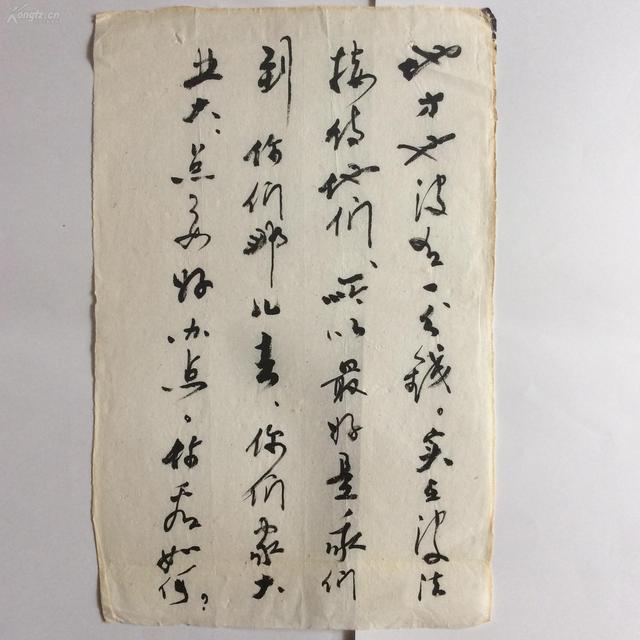 地方也没有一分錢。实在没法
接待他们、所以最好是我们
到你们那儿去、你们家大
业大、总要好办点、你看如何?
Kongfz.cn